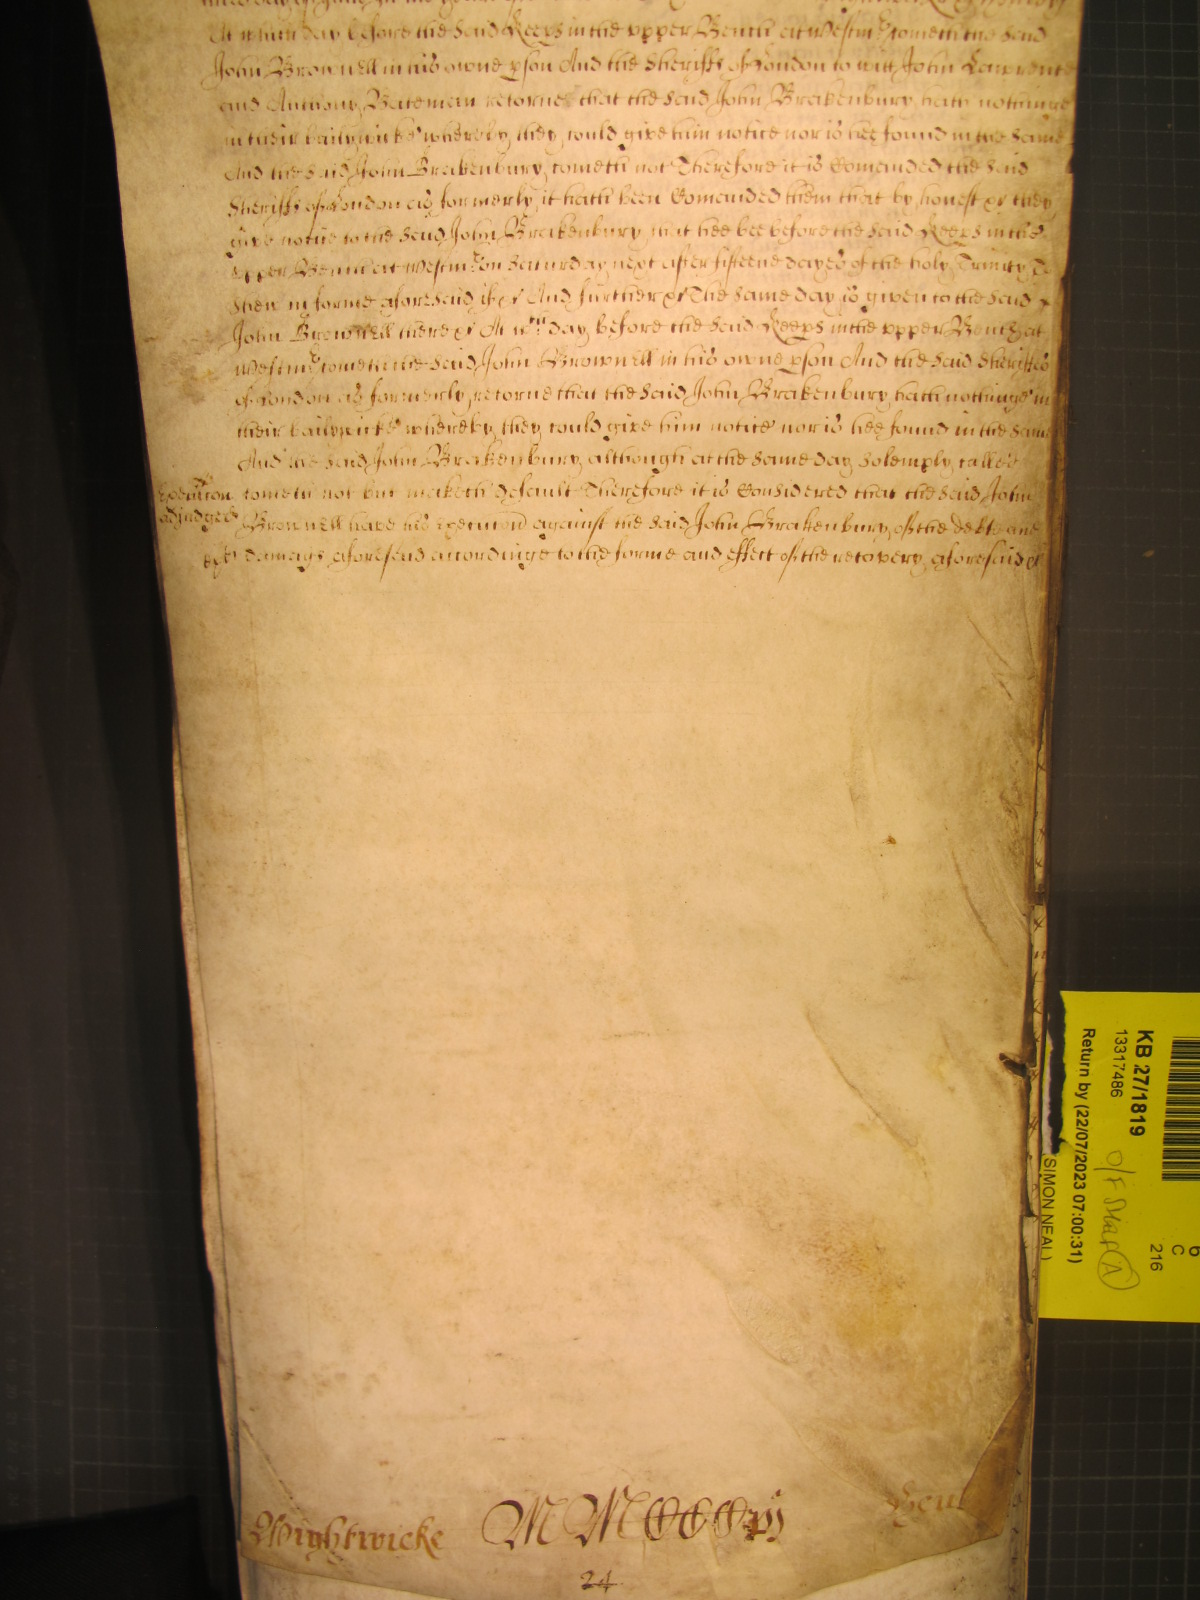 At which day before the said Keeps in the vpper Bench at Westm cometh the said
John Brownell in his owne pson And the Sheriffs of London to witt John Lawrence
and Anthony Bateman retorne that the said John Brakenbury hath nothinge
in their bailywicks whereby they could give him notice nor is hee found in the same
And the said John Brakenbury cometh not Therefore it is Comanded the said
Sheriffs of London as formerly it hath been Comanded them that by honest &c they
give notice to the said John Brakenbury that hee bee before the said Keeps in the
vpper Bench at Westm on Saturday next after fifteene dayes of the holy Trinity To
shew in forme aforesaid if &c And further &c The same day is given to the said
John Brownell there &c At wch day before the said Keeps in the vpper Bench at
Westm cometh the said John Brownell in his owne pson And the said Sheriffes
of London as formerly retorne that the said John Brakenbury hath nothinge in
their bailywicks whereby they could give him notice nor is hee found in the same
And the said John Brakenbury although at the same day solemply called
Execution cometh not but maketh default Therefore it is Considered that the said John
adjudged Brownell have his execucion against the said John Brakenbury of the debt and
damags aforesaid accordinge to the forme and effect of the recovery aforesaid &c
Wightwicke MMCCCCxij
24
KB 27/1819
13317486
Return by (22/07/2023 07:00:31)
SIMON NEAL)
O/F Star A
6
C
216